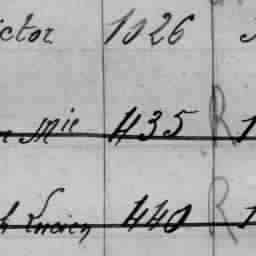 ictor 1026
Mie 435 R 1
h Lucien 440 R 1